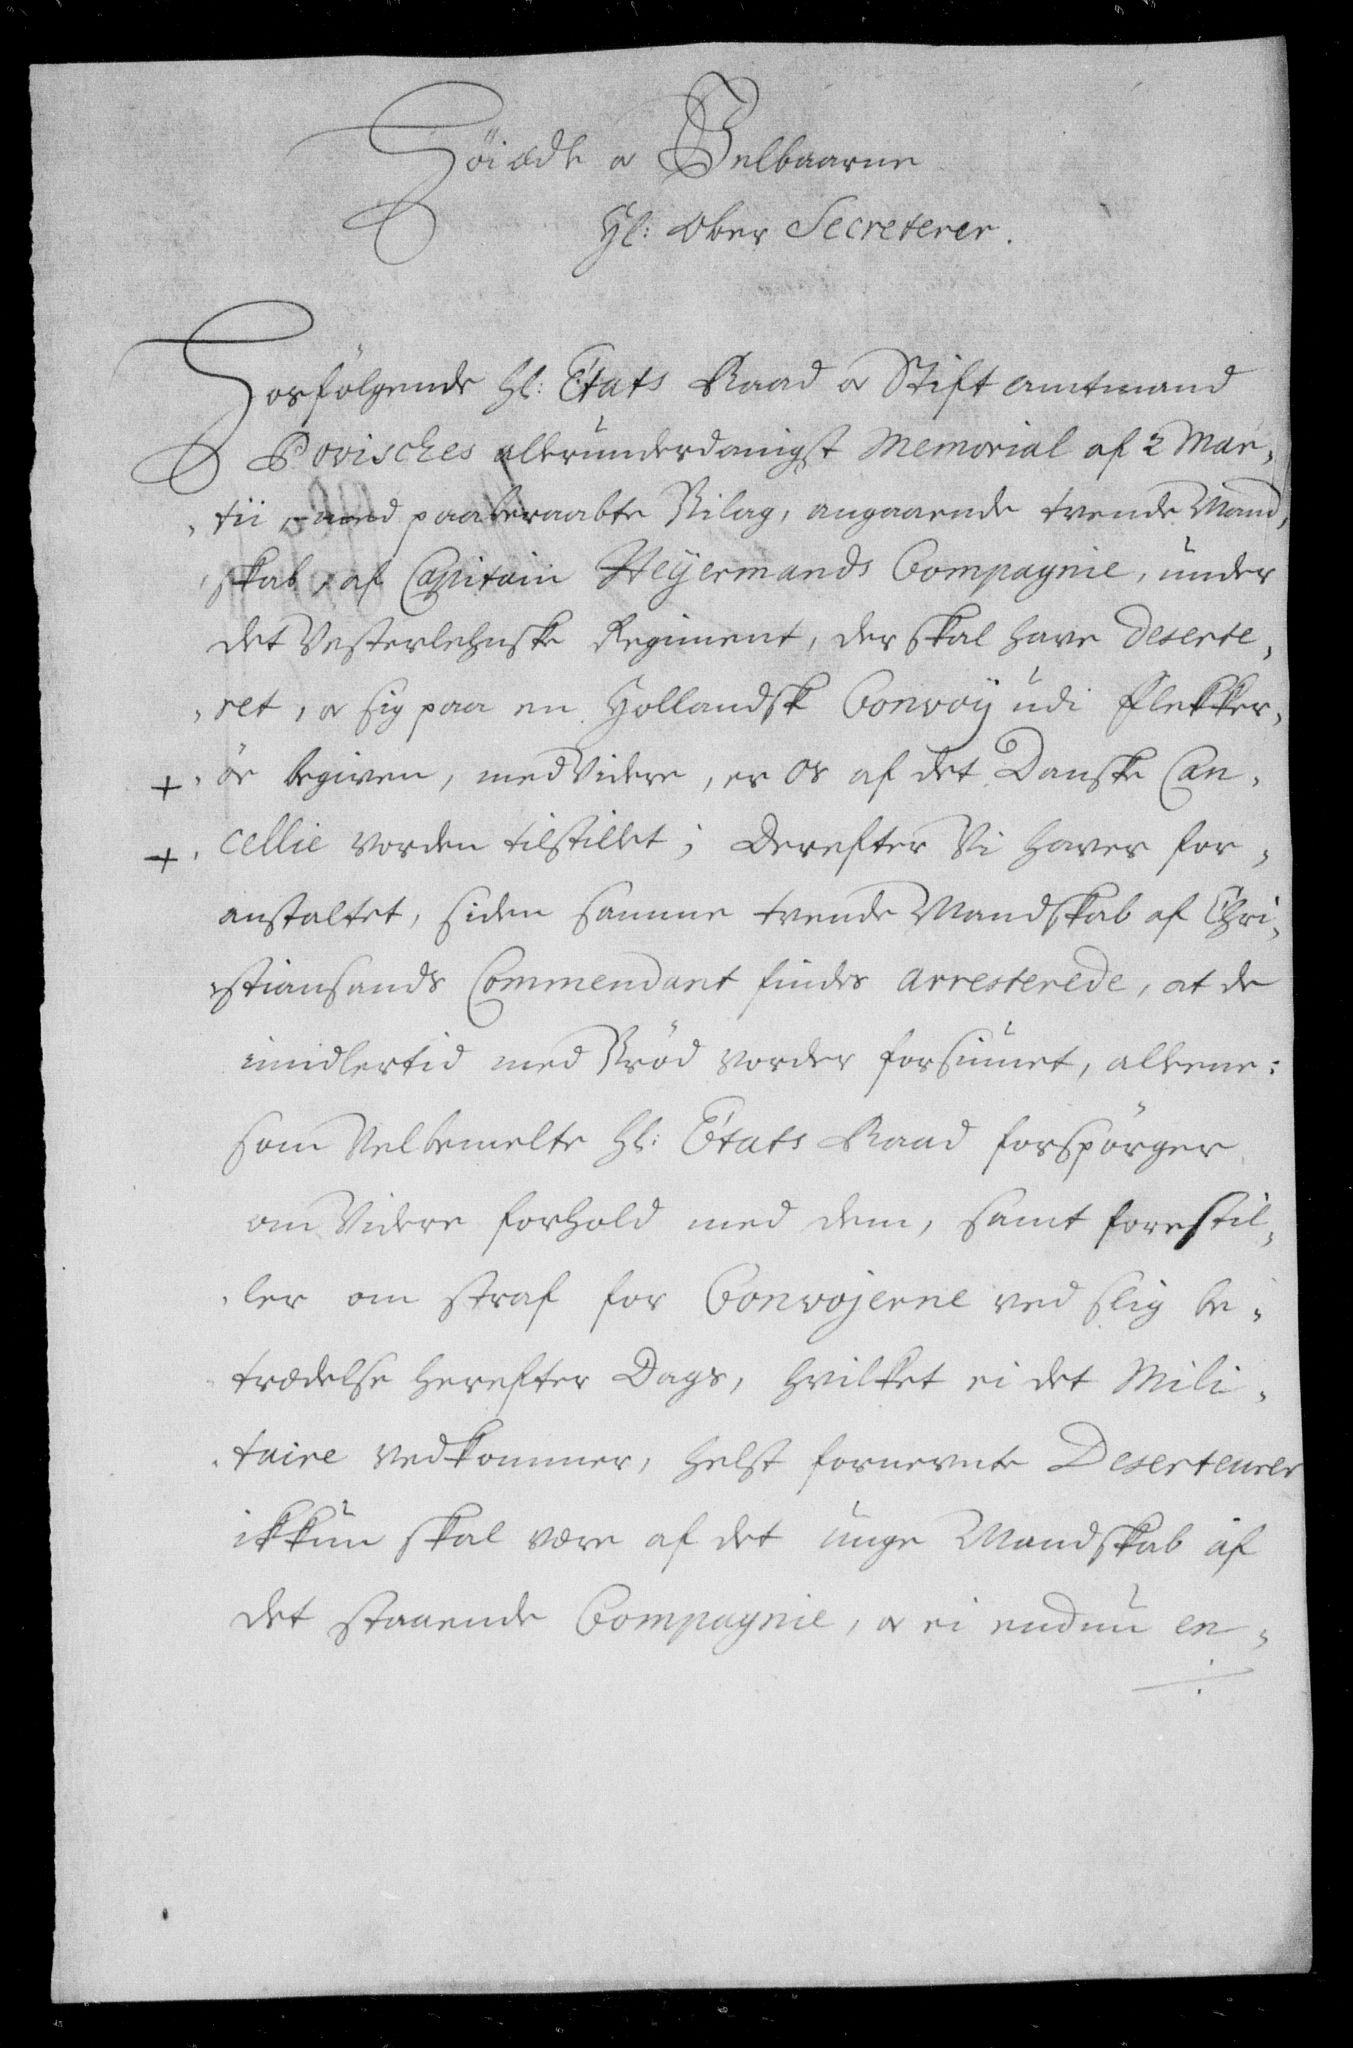 Høiædle og Velbaarne
Hl: Ober Secreterer.
Hosfølgende hl: Etats Raad og Stift amtmand
Povisches allerunderdanigst Memorial af 2 Mar-
tii, med paaberaabte Bilag, angaaende trende Mand,
skab, af Capitain Heÿermands Compagnie, under
det Vesterlehnske Regiment, der skal have deserte,
ret, og sig paa en Hollandsk Convoÿ udi Flekker,
+ øe begiven, med Videre, er os af det Danske Can,
+ cellie vorden tilstillet; Derefter Vi haver for,
anstaltet, siden samme trende Mandskab af Chri,
stiansands Commendant findes arresterede, at de
imidlertid med Brød vorder forsiunet, allene:
som Velbemelte hl: Etats Raad forspørger
om Videre forhold med dem, samt forestil,
ler om straf for Convojerne ved slig be,
trædelse herefter Dags, hvilket ei det Mili,
taire vedkommer, helst fornevnte Deserteurer
ikkun skal være af det unge Mandskab af
det staaende Compagnie, og ei endnu en,